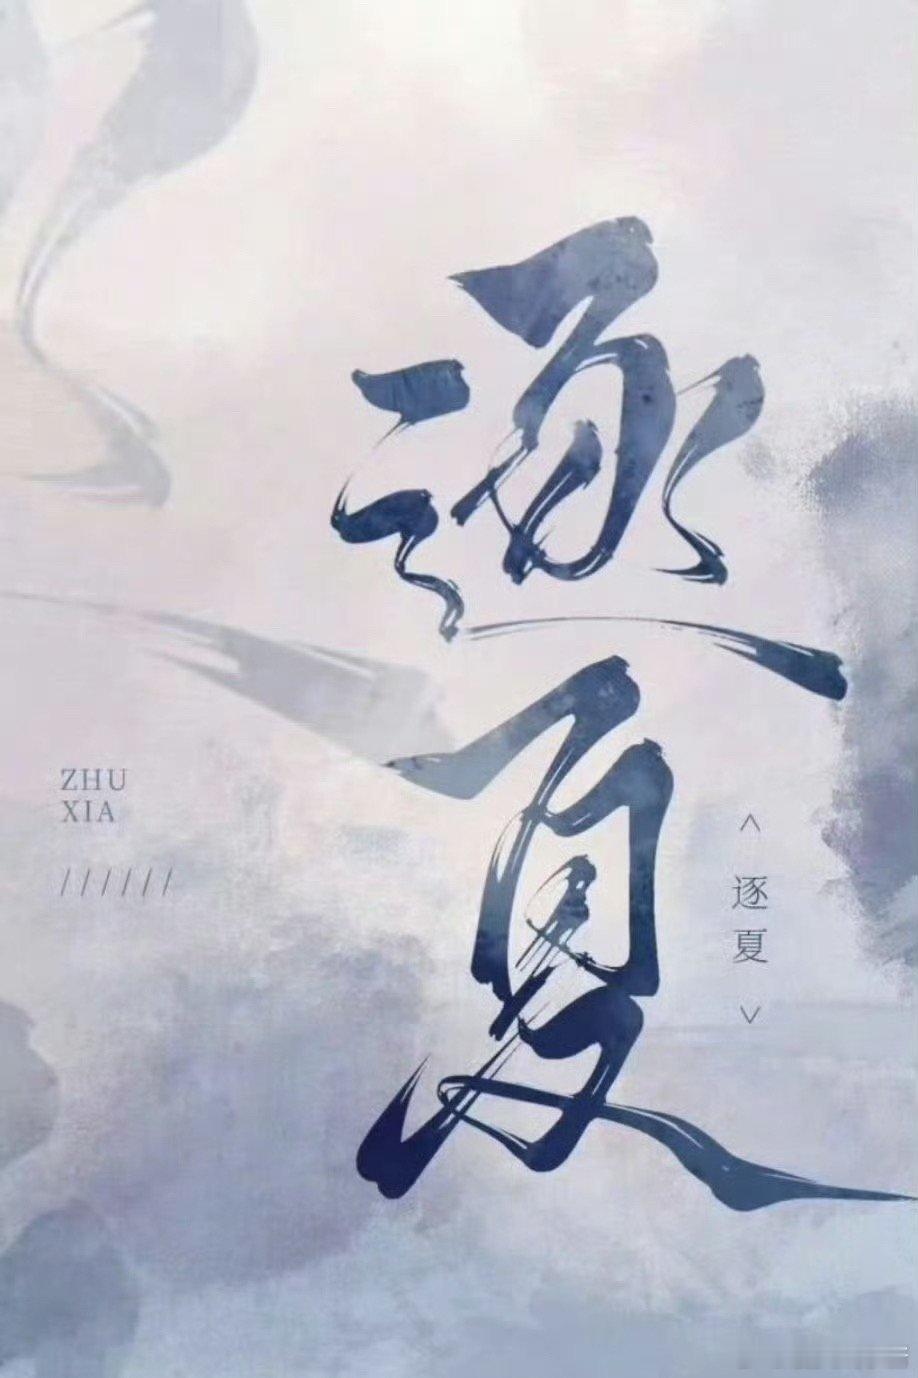 逐夏
ZHU
XIA
//////
<逐夏>